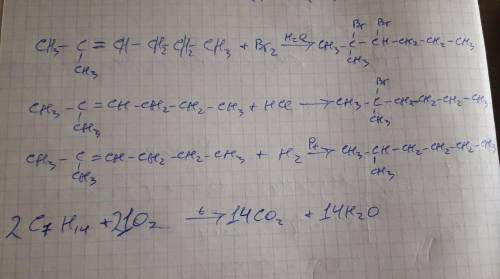 Br Br
CH₃ - C = CH - CH₂ - CH₂ - CH₃ + Br₂ H₂O→ CH₃ - C - CH - CH₂ - CH₂ - CH₃
CH₃ CH₃
Br
CH₃ - C = CH - CH₂ - CH₂ - CH₃ + HCl → CH₃ - C - CH₂ - CH₂ - CH₂ - CH₃
CH₃ CH₃
CH₃ - C = CH - CH₂ - CH₂ - CH₃ + H₂ Pt→ CH₃ - CH - CH₂ - CH₂ - CH₂ - CH₃
CH₃ CH₃
2 C₇H₁₄ + 21O₂ t→ 14CO₂ + 14H₂O